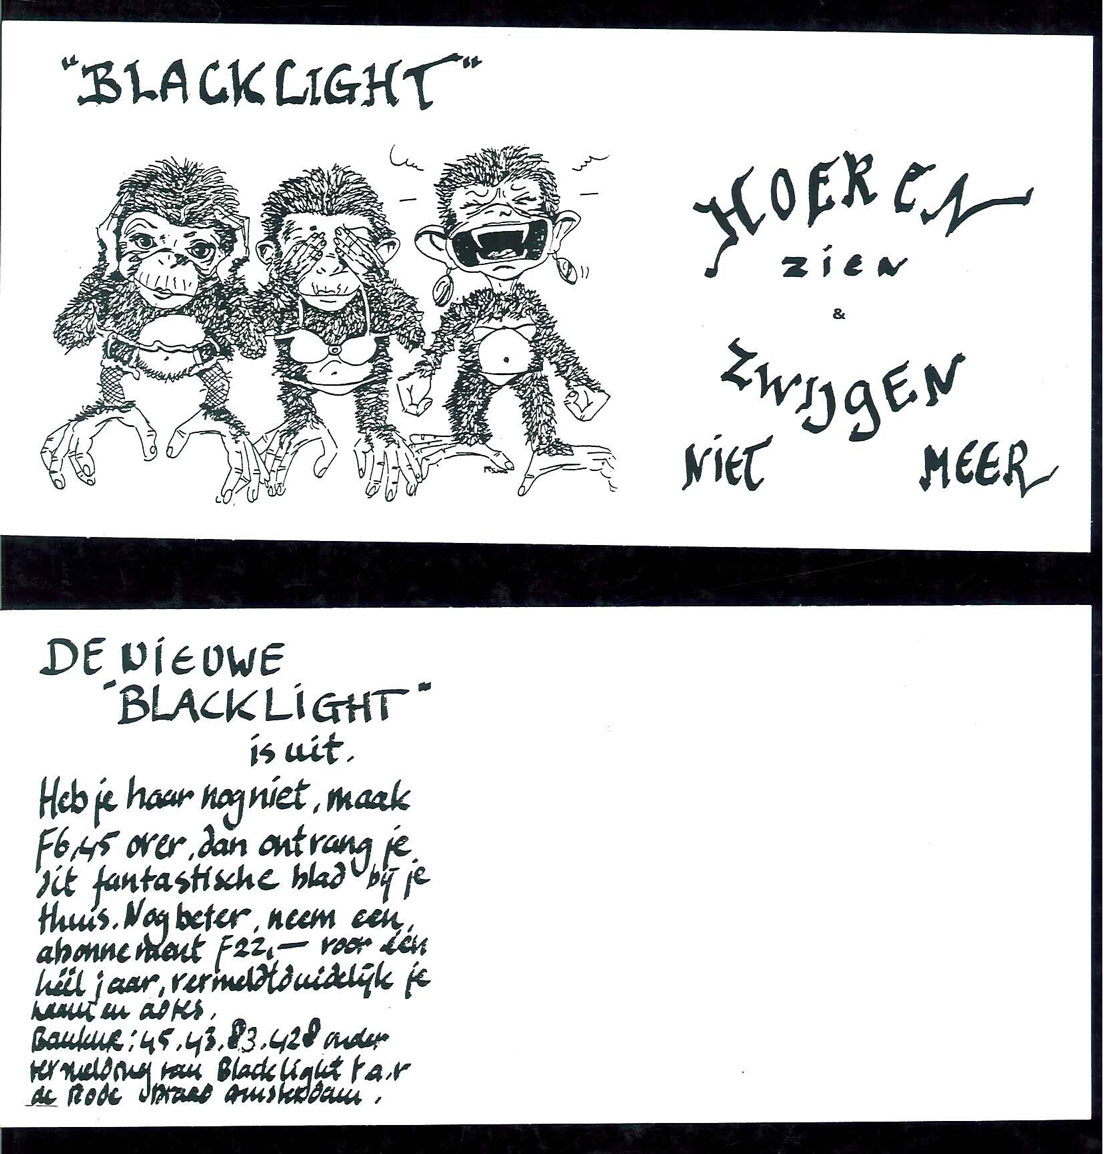 "BLACKLIGHT"
HOEREN
zien
&
ZWIJGEN
NIET MEER
DE NIEUWE
"BLACKLIGHT"
is uit.
Heb je haar nog niet, maak
F6,45 over, dan ontvang je
dit fantastische blad bij je
thuis. Nog beter, neem een
abonnement F22,— voor één
héél jaar, vermeldt duidelijk je
naam en adres.
Banknr: 45.43.83.428 onder
vermelding van Blacklight t.a.v
de Rode Draad Amsterdam.